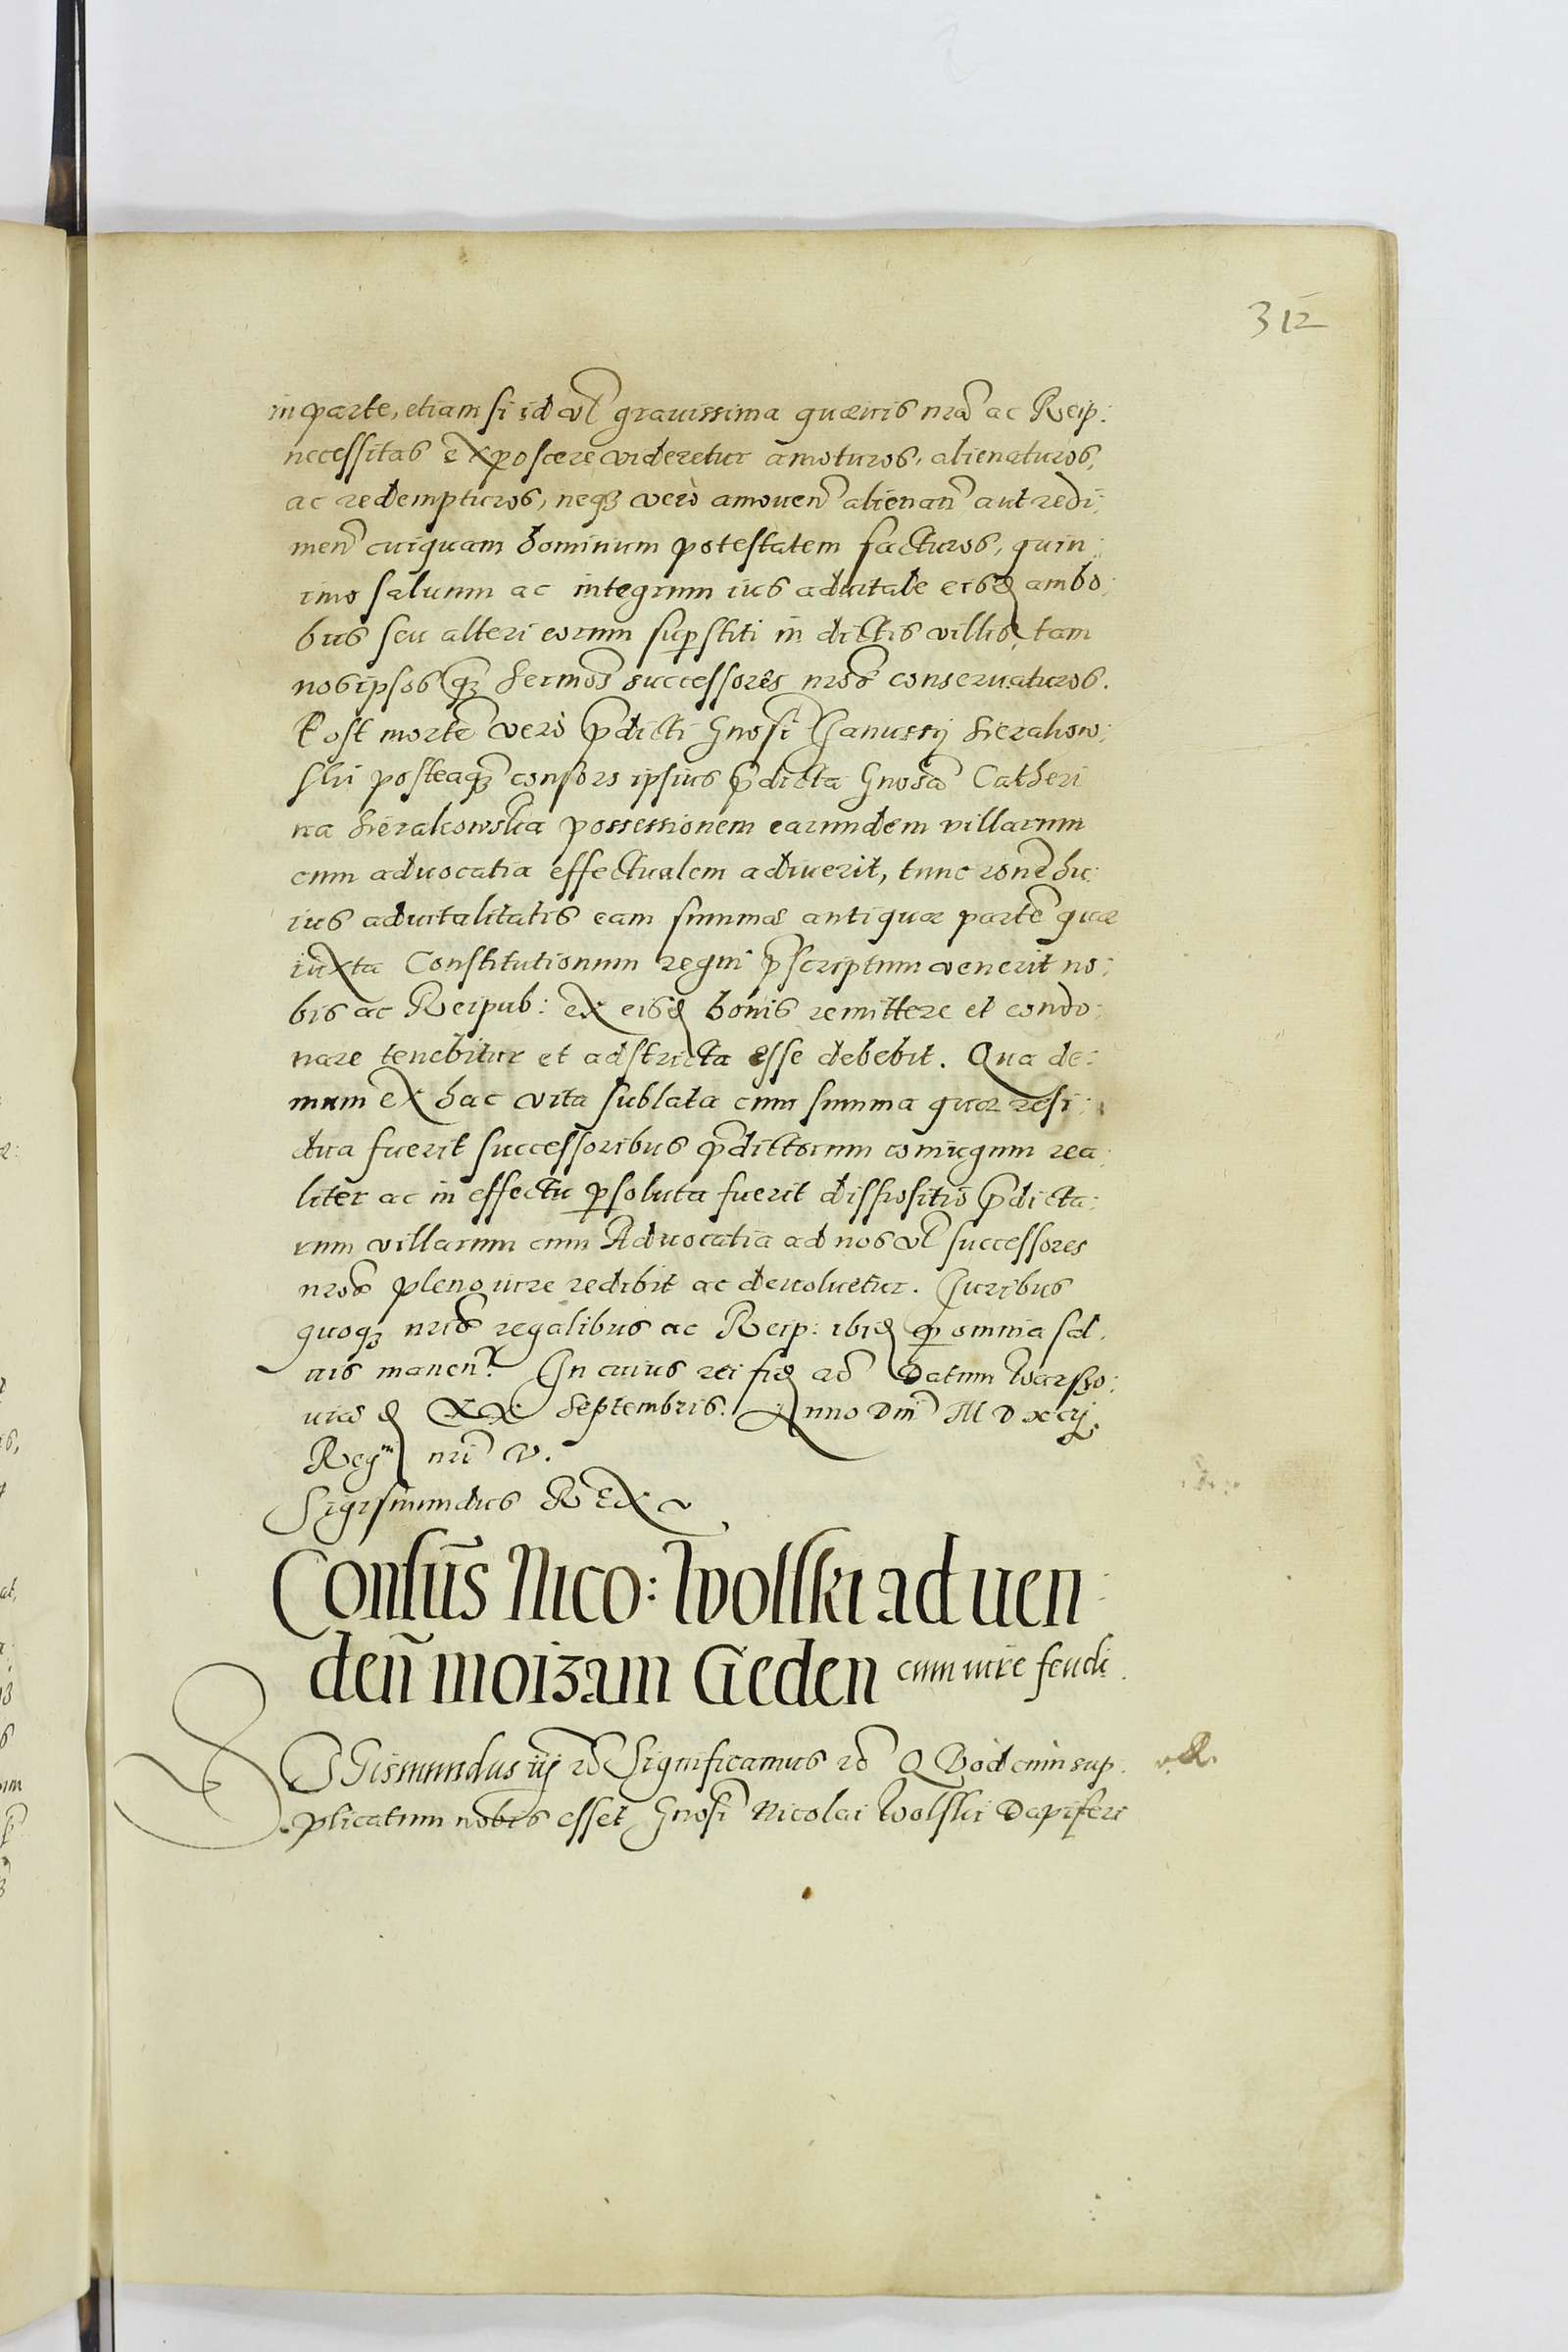 312
in parte, etiam si id vl gravissima quævis nrã ac Reip:
necessitas exposcere videretur amoturos, alienaturos,
ac redempturos, neqz verò amoven̄ alienan̄ aut redi:
men̄ cuiquam hominum potestatem facturos, quin:
imo salvum ac integrum ius advitale eisd ambo:
bus seu alteri eorum supstiti in dictis villis, tam
nos ipsos qz Sermos̄ successores nros̄ conservaturos.
Post mortē verò p̄dicti Gnosi Janussij Sierakow:
ski posteaqz consors ipsius p̄dicta Gnosa Catheri
na Sierakowska possessionem earundem villarum
cum advocatia effectualem adiverit, tunc rone hu:
ius advitalitatis eam summæ antiquæ partē quæ
iuxta Constitutionum regni p̄scriptum venerit no:
bis ac Reipub: ex eisd bonis remittere et condo:
nare tenebitur et adstricta esse debebit. Qua de:
mum ex hac vita sublata cum summa quæ resi:
dua fuerit successoribus p̄dictorum coniugum rea:
liter ac in effectu psoluta fuerit dispositio p̄dicta:
rum villarum cum Advocatia ad nos vl successores
nros̄ pleno iure redibit ac devolvetur. Juribus
quoqz nris̄ regalibus ac Reip: ibid p omnia sal:
vis manen̄. In cuius rei fid &c̄ Datum Warsso:
viæ d XX Septembris. Anno Dni M D xcij
Regn nri V.
Sigismundus Rex
Consūs Nico: Wolski ad ven:
deñ moizam Geden cum iure feudi.
SIGismundus iij &c̄ Significamus &c̄ QVod cum sup:
plicatum nobis esset Gnosi Nicolai Wolski Dapiferi